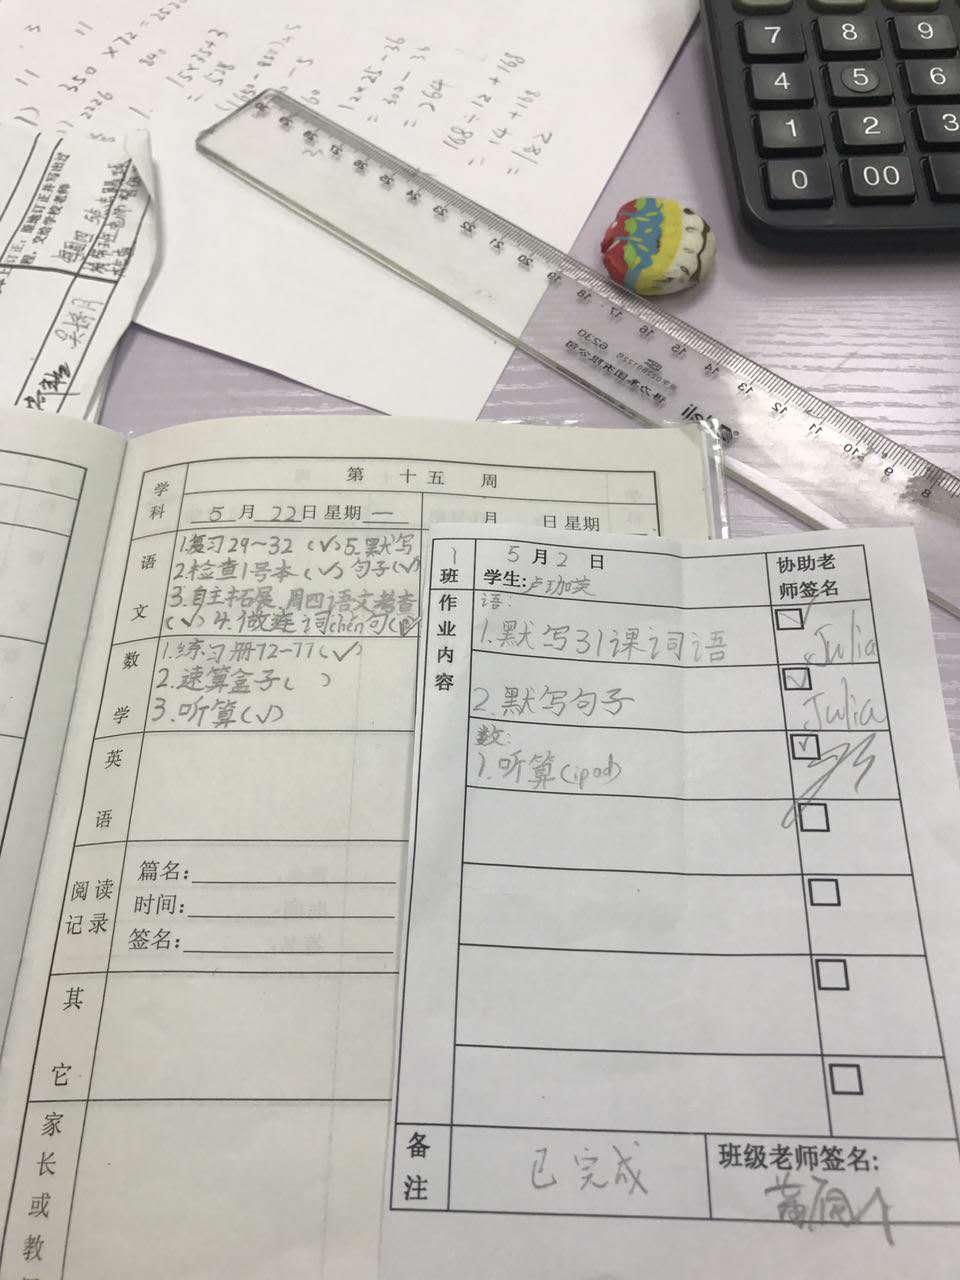 7 8 9
4 5 6
1 2 3
0 00
350 × 72 - 2520
15×35+3
= 528
12×25-36
= 300-36
= 264
168÷12+168
= 14+168
= 182
吴婷月
deli
6230
第 十 五 周
学科
5月22日 星期一
月 日 星期
语文
1.复习29~32 (√) 5.默写
2.检查1号本 (√) 句子(√)
3.自主拓展 周四语文考查
(√) 4.做连词chén句(√)
数学
1.练习册72-77(√)
2.速算盒子( )
3.听算(√)
英语
阅读记录
篇名:
时间:
签名:
其它
家长或教
1班
5月2 日
学生:卢珈英
协助老师签名
作业内容
语:
1.默写31课词语
Julia
2.默写句子
Julia
数:
1.听算(ipad)
备注
已完成
班级老师签名: